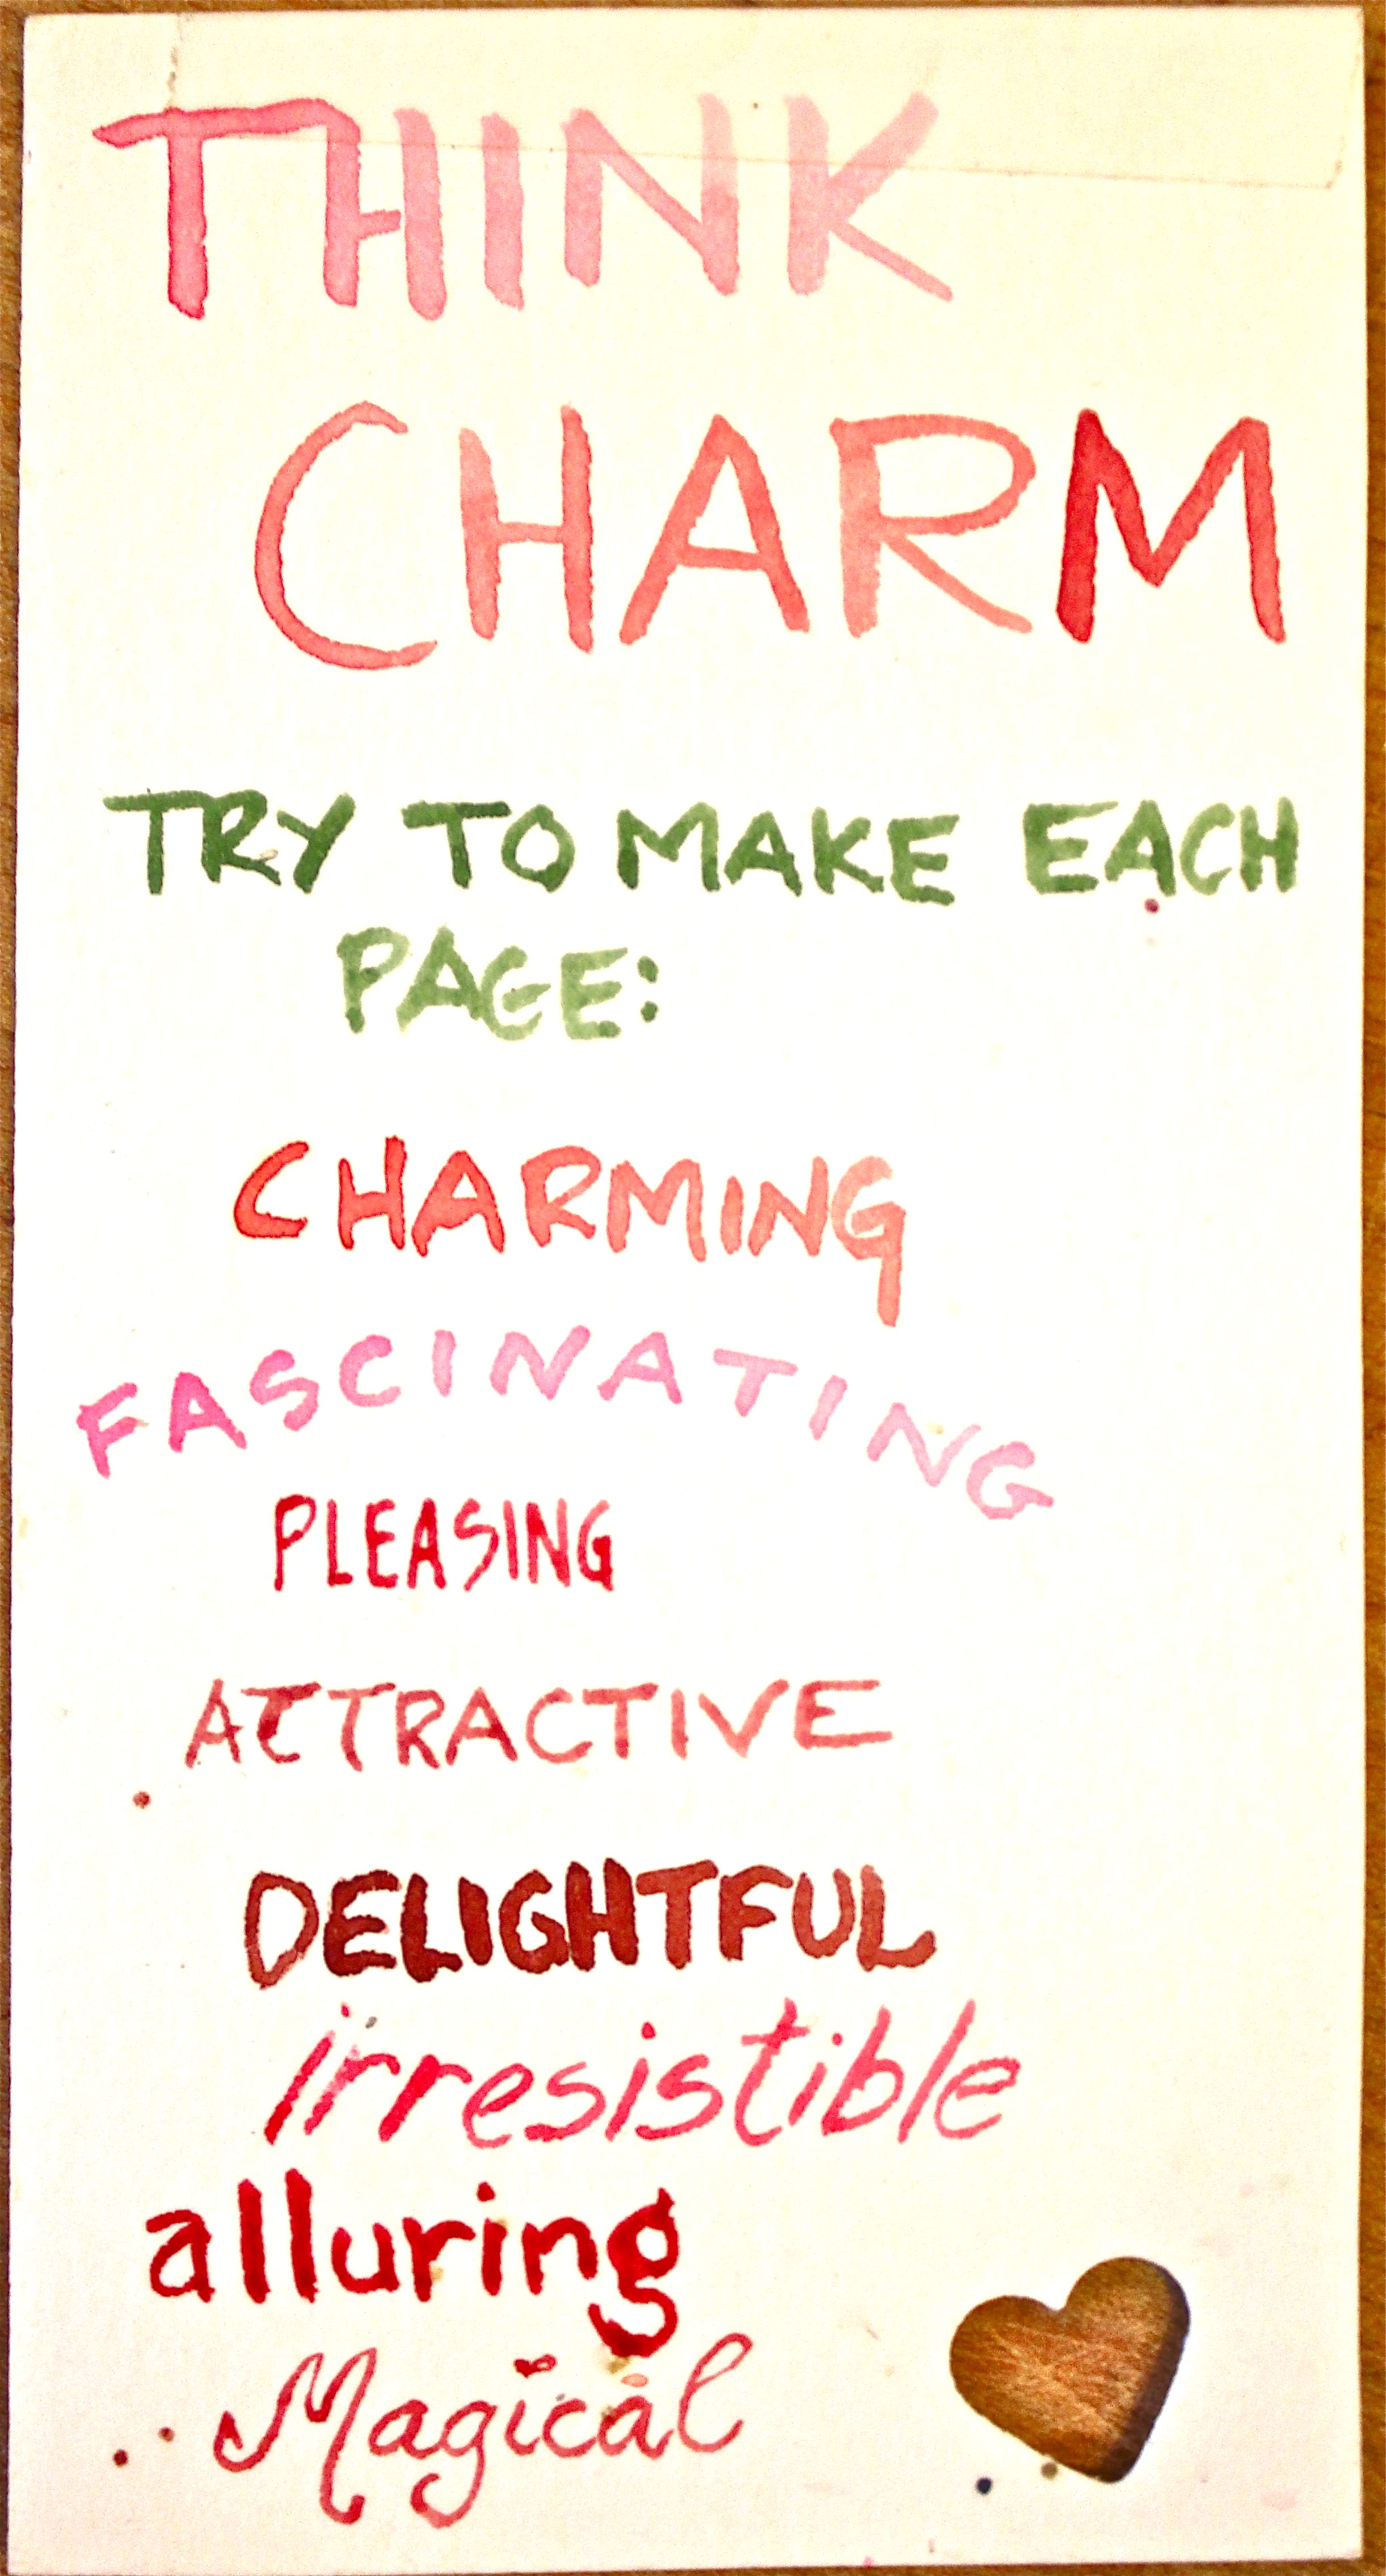 THINK
CHARM
TRY TO MAKE EACH
PAGE:
CHARMING
FASCINATING
PLEASING
ATTRACTIVE
DELIGHTFUL
irresistible
alluring
Magical